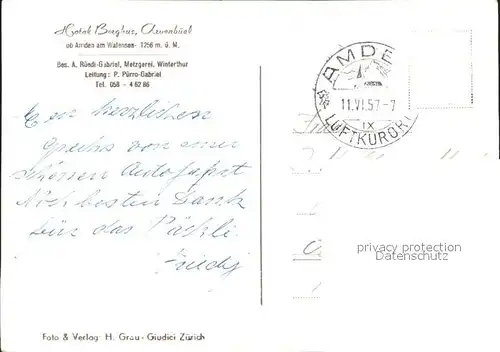 Hotel Berghus, Arvenbüel
ob Amden am Walensee 1256 m. ü. M.
Bes. A. Rüedi-Gabriel, Metzgerei, Winterthur
Leitung: P. Pürro-Gabriel
Tel. 058 - 4 62 86
AMDE
11.VI.57-7
IX
LUFTKURORT
Ein herzlichen
gruss von einer
schönen Autofahrt
Noch besten Dank
für das Päckli.
Friedy
privacy protection
Datenschutz
Foto & Verlag: H. Grau - Giudici Zürich